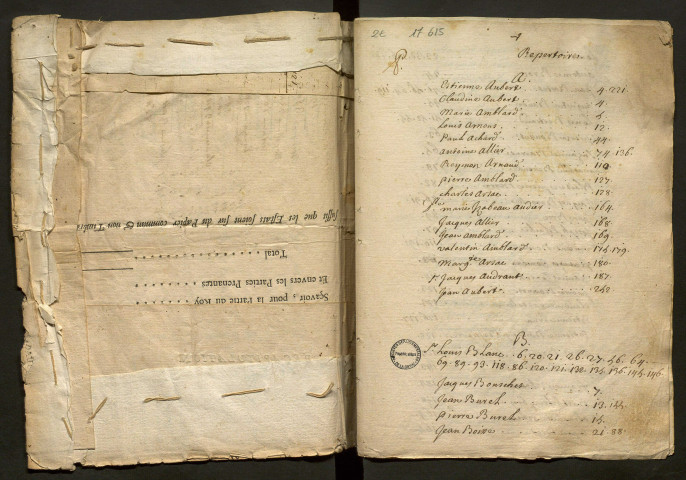 suffit que les Estats soient sur du Papier commun & non Timbré
Total
Et envers les Parties Prenantes
Sçavoir, pour la Partie du Roy
2E 17 615
Repertoire
A.
Estienne Aubert 4. 221.
Claudine Aubert 4.
Marie Amblard
Louis Arnoux 12.
Paul Achard 44.
Antoine Allier 74. 136.
Reymon Arnaud 110
pierre Amblard 127.
charles Arsac 128.
Sr marie Izabeau Audier 164.
Jacques Allier 168.
Jean Amblard 169.
Valentin Amblard 174. 179.
Margte Arsac 180.
Sr Jacques Audrant 187.
Jean Aubert 248.
B.
Sr Louis Blanc 6. 20. 21. 26. 27. 56. 64.
69. 89. 93. 118. 86. 120. 121. 132. 134. 136. 145. 146.
Jacques Bouschet 7.
Jean Burel 13. 144.
pierre Burel 14.
Jean Borre 21. 88.